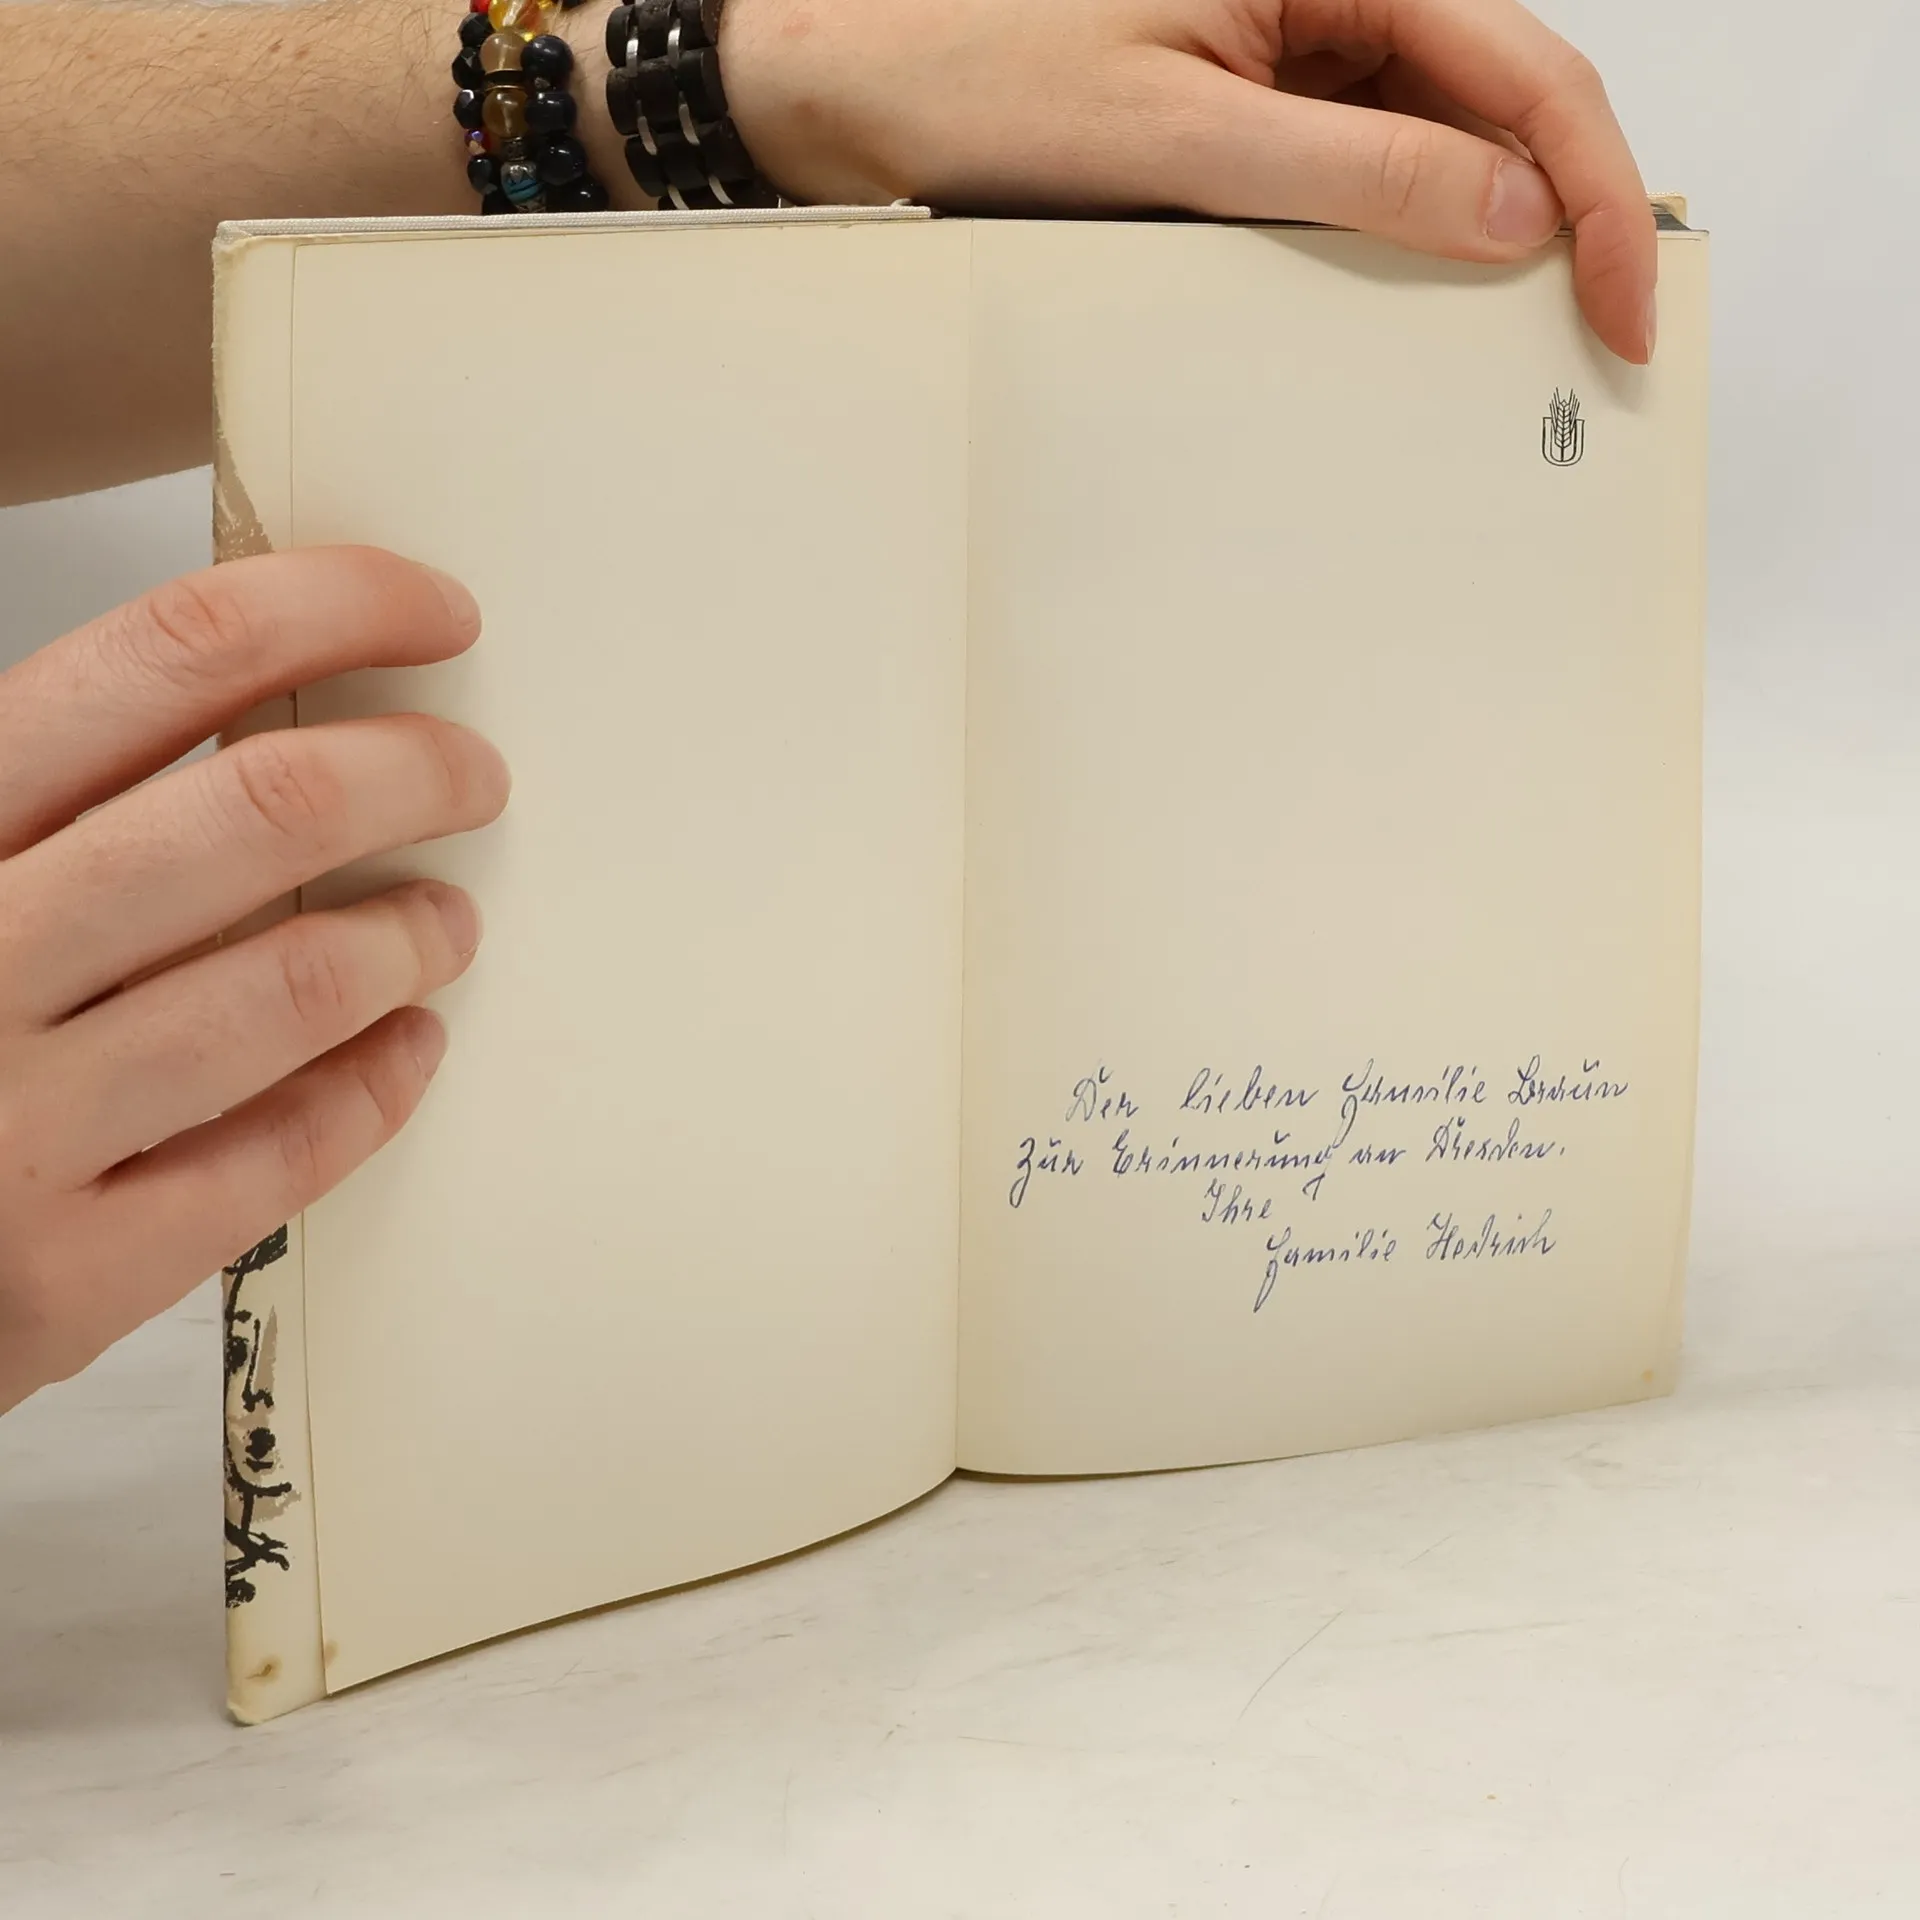 Der lieben Familie Braun
Zur Erinnerung an Dresden.
Ihre
Familie Hedrich